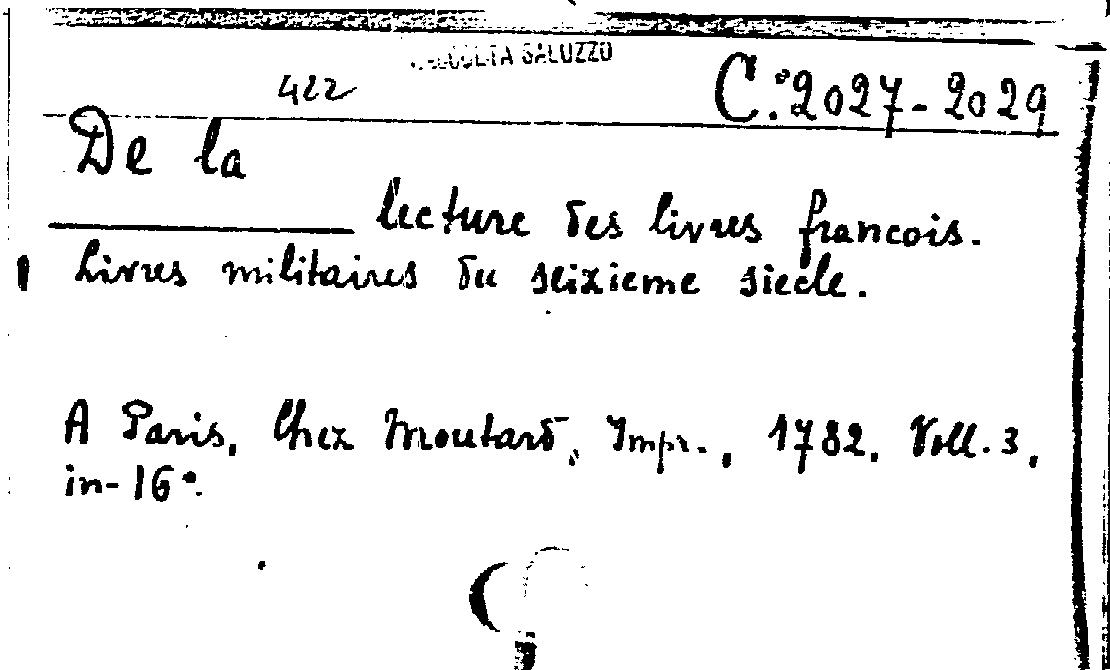 RACCOLTA SALUZZO
422 C.° 2027-2029
De la
lecture des livres francois.
Livres militaires du seizieme siecle.
A Paris, Chez Moutard, Impr., 1782. Voll. 3,
in-16°.